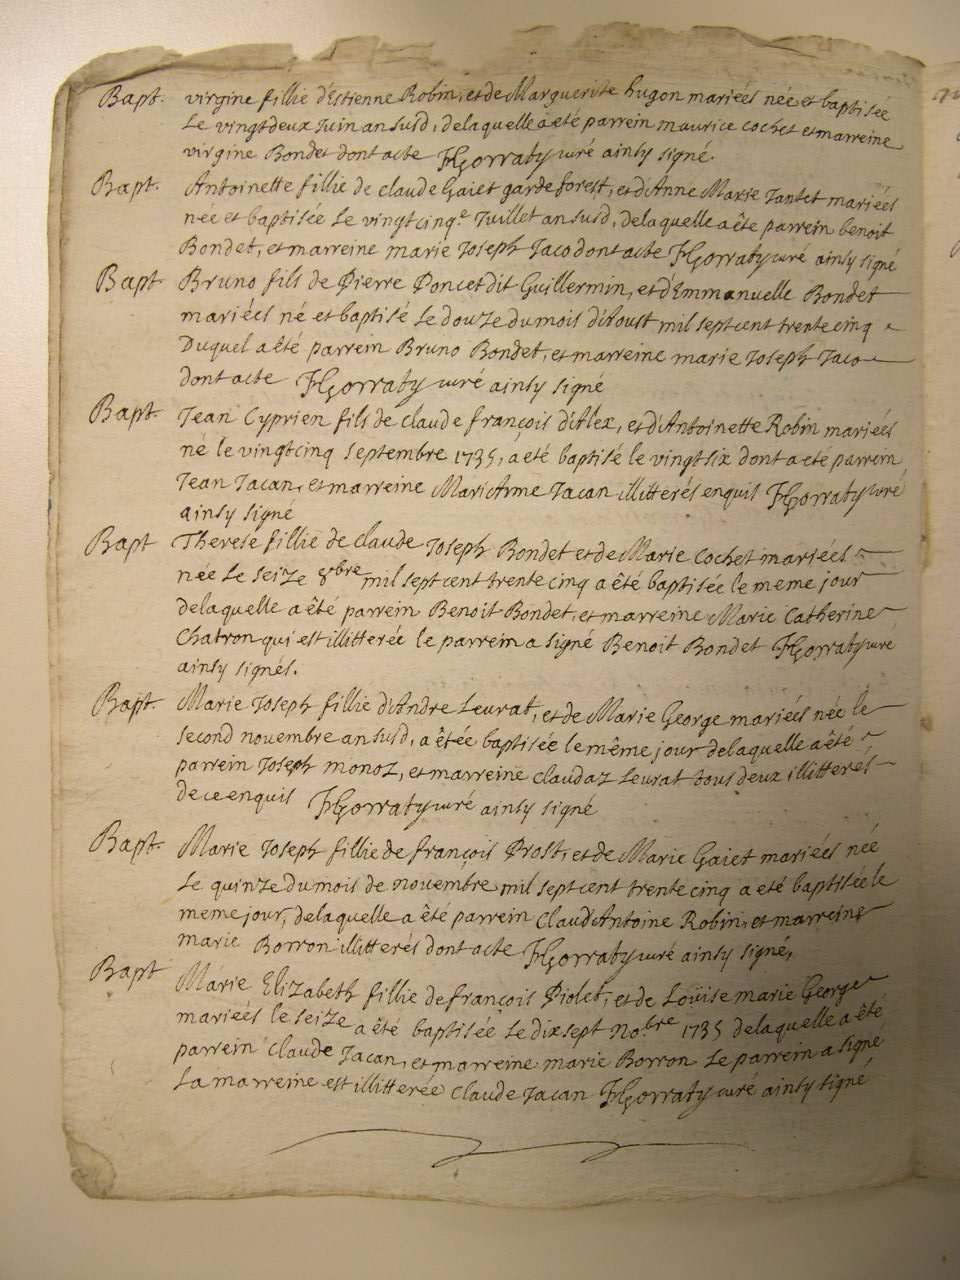 Bapt. virgine fillie d'Estienne Robin, et de Marguerite hugon mariéés née et baptisée
Le vingtdeux Juin an susd, delaquelle a été parrein maurice cochet et marreine
virgine Bondet dont acte Gorraty curé ainsy signé.
Bapt. Antoinette fillie de claude Gaiet garde forest, et d'Anne Marie Tantet mariéés
née et baptisée Le vingtcinqe Juillet an susd, delaquelle a été parrein benoit
Bondet, et marreine marie Joseph Jaco dont acte Gorraty curé ainsy signé
Bapt Bruno fils de Pierre Poncet dit Guillermin, et d'Emmanuelle Bondet
mariéés né et baptisé Le douze du mois d'Aoust mil septcent trente cinq
Duquel a été parrein Bruno Bondet, et marreine marie Joseph Jaco
dont acte Gorraty curé ainsy signé
Bapt. Jean Cyprien fils de claude françois d'Alex, et d'Antoinette Robin mariéés
né le vingtcinq septembre 1735, a été baptisé le vingtsix dont a eté parrein
Jean Jacan, et marreine Mari'Anne Jacan illitterés enquis Gorraty curé
ainsy signé
Bapt Therese fillie de claude Joseph Bondet et de Marie Cochet mariéés
née Le seize 8bre mil septcent trente cinq a été baptisée le meme jour
delaquelle a été parrein Benoit Bondet, et marreine Marie Catherine
Chatron qui est illitterée le parrein a signé Benoit Bondet Gorraty curé
ainsy signés.
Bapt. Marie Joseph fillie d'Andre Leurat, et de Marie George mariéés née le
second novembre an susd, a êtée baptisée le même jour delaquelle a été
parrein Joseph monoz, et marreine claudaz Leurat tous deux illitterés
de ce enquis Gorraty curé ainsy signé
Bapt. Marie Joseph fillie de françois Prost, et de Marie Gaiet mariéés née
Le quinze du mois de novembre mil septcent trente cinq a eté baptisée le
meme jour, delaquelle a été parrein Claud'Antoine Robin, et marreine
marie Borron illitterés dont acte Gorraty curé ainsy signé,
Bapt Marie Elizabeth fillie de françois Piolet, et de Loüise marie George
mariéés le seize a été baptisée Le dixsept No.bre 1735 delaquelle a été
parrein Claude Jacan, et marreine marie Borron Le parrein a signé
La marreine est illitterée Claude Jacan Gorraty curé ainsy signé